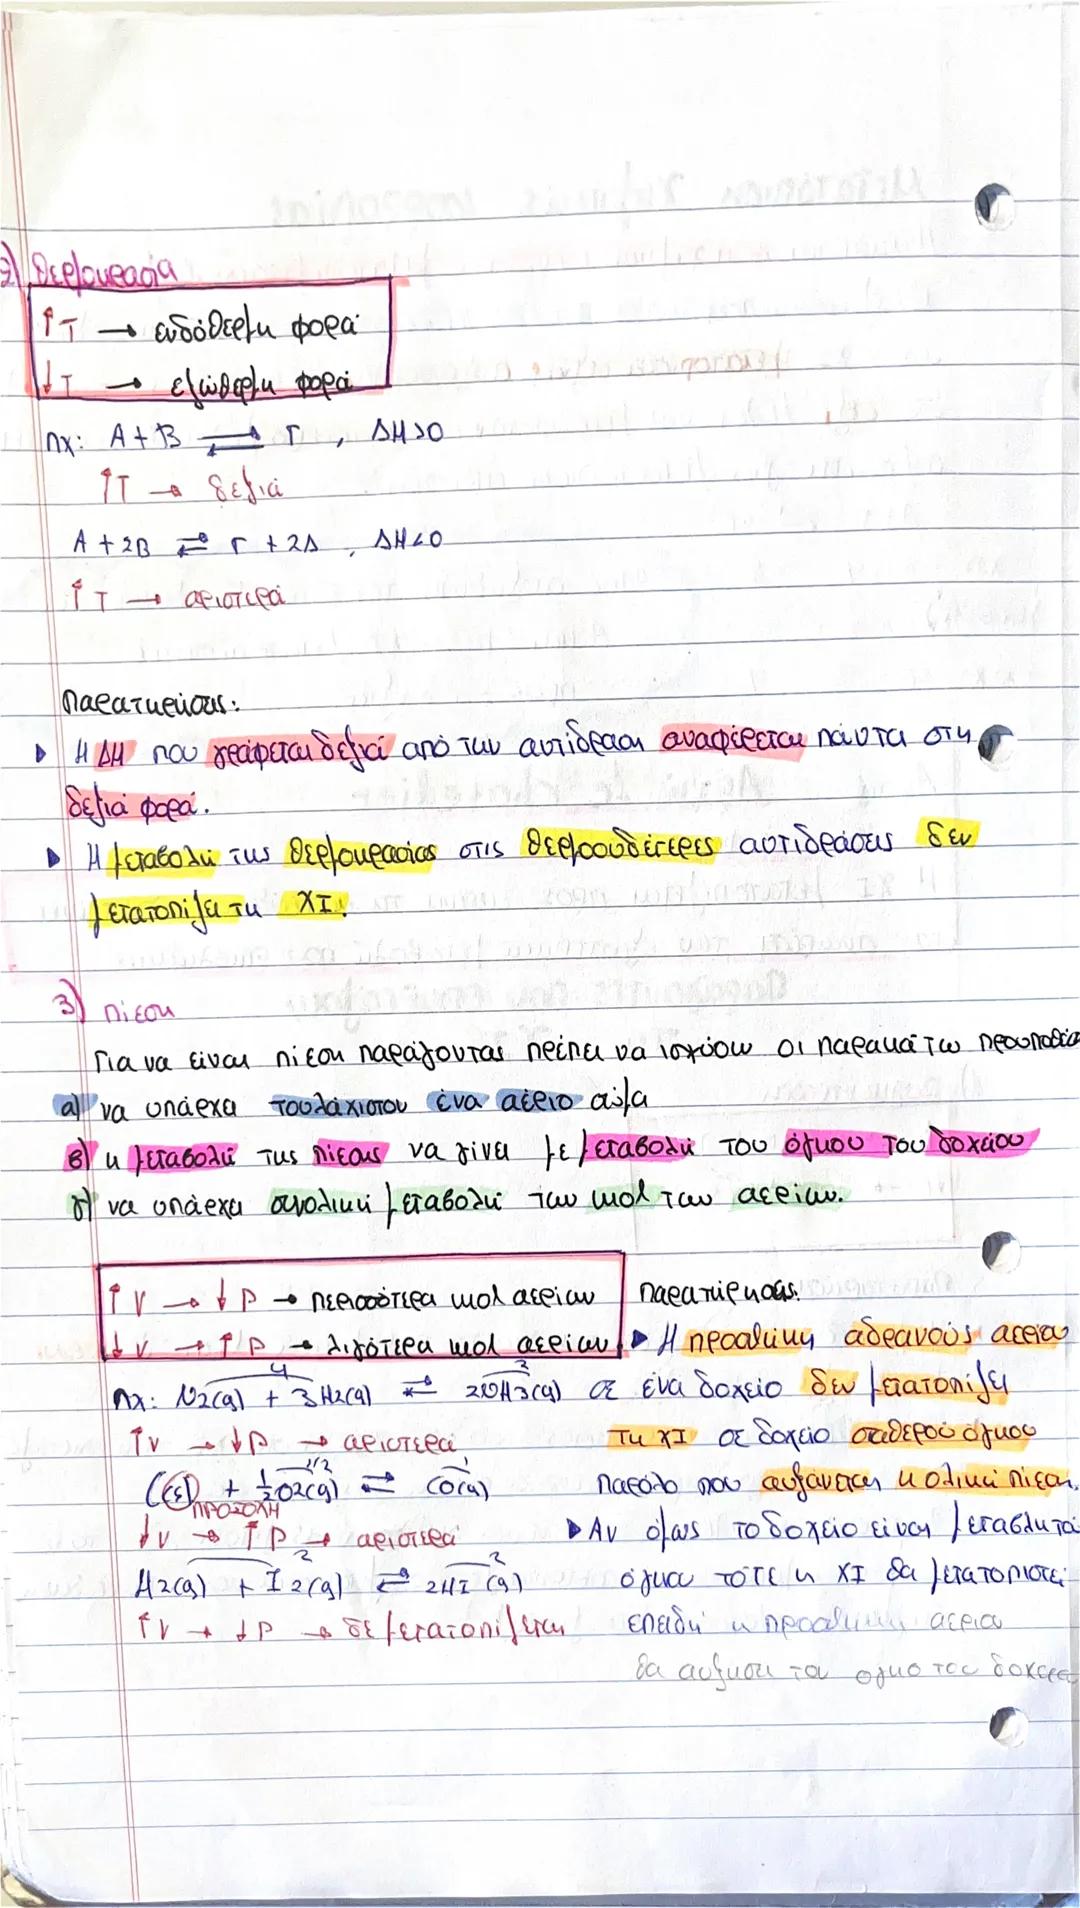 2) Θερμοκρασία
↑T → ενδόθερμη φορά
↓T → εξώθερμη φορά
πχ: A + B ⇌ Γ , ΔH>0
↑T → δεξιά
A + 2B ⇌ Γ + 2Δ , ΔH<0
↑T → αριστερά
Παρατηρήσεις:
▶ Η ΔΗ που γράφεται δεξιά από την αντίδραση αναφέρεται πάντα στη
δεξιά φορά.
▶ Η μεταβολή της θερμοκρασίας στις θερμοουδέτερες αντιδράσεις δεν
μετατοπίζει τη ΧΙ.
3) Πίεση
Για να είναι πίεση παράγοντας πρέπει να ισχύουν οι παρακάτω προυποθέσ
α) να υπάρχει τουλάχιστον ένα αέριο σώμα
β) η μεταβολή της πίεσης να γίνει με μεταβολή του όγκου του δοχείου
γ) να υπάρχει συνολική μεταβολή των mol των αερίων.
↑V → ↓P → περισσότερα mol αερίων
↓V → ↑P → λιγότερα mol αερίων
πχ: N2(g) + 3H2(g) ⇌ 2NH3(g)
4 2
↑V → ↓P → αριστερά
C(s) + 1/2O2(g) ⇌ CO(g)
1/2 1
ΠΡΟΣΟΧΗ
↓V → ↑P → αριστερά
H2(g) + I2(g) ⇌ 2HI(g)
2 2
↑V → ↓P → δε μετατοπίζεται
Παρατήρησεις:
▶ Η προσθήκη αδρανούς αερίου
σε ένα δοχείο δεν μετατοπίζει
τη ΧΙ σε δοχείο σταθερού όγκου
παρόλο που αυξάνεται η ολική πίεση.
▶ Αν όμως το δοχείο είναι μεταβλητού
όγκου τότε η ΧΙ θα μετατοπιστεί
επειδή η προσθήκη αεριου
θα αυξηση τον ογκο του δοχειου